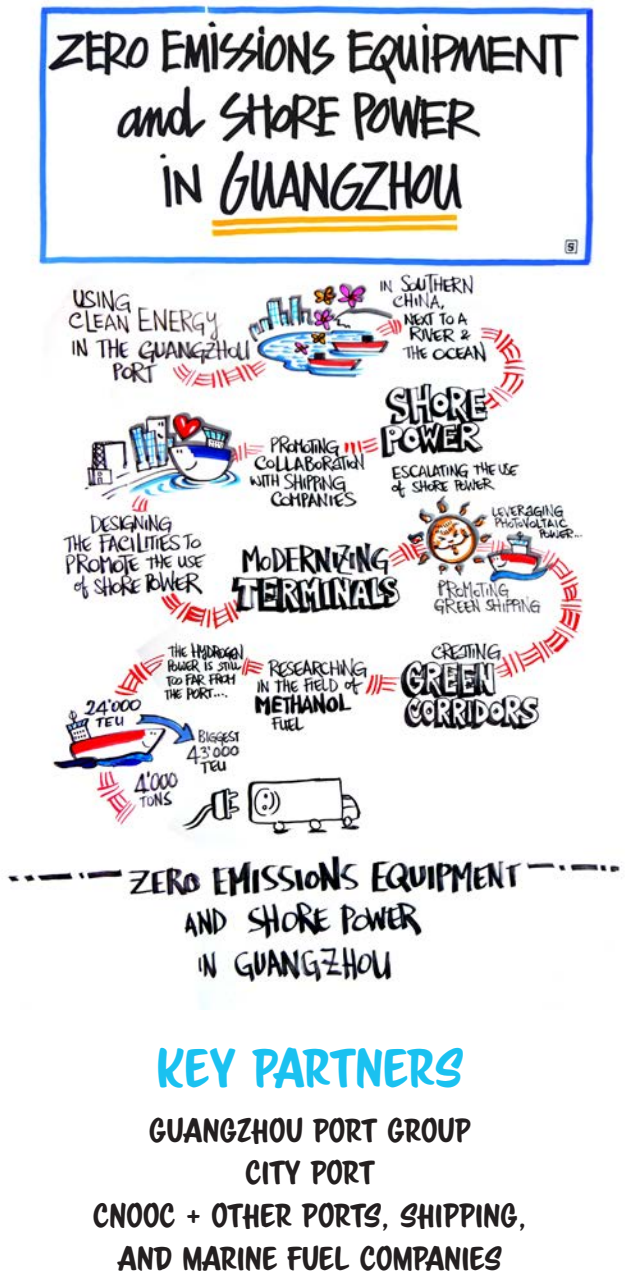 ZERO EMISSIONS EQUIPMENT
and SHORE POWER
IN GUANGZHOU
USING
CLEAN ENERGY
IN THE GUANGZHOU
PORT
IN SOUTHERN
CHINA,
NEXT TO A
RIVER &
THE OCEAN
SHORE
POWER
ESCALATING THE USE
of SHORE POWER
PROMOTING
COLLABORATION
WITH SHIPPING
COMPANIES
DESIGNING
THE FACILITIES TO
PROMOTE THE USE
of SHORE POWER
MODERNIZING
TERMINALS
LEVERAGING
PHOTOVOLTAIC
POWER...
PROMOTING
GREEN SHIPPING
CREATING
GREEN
CORRIDORS
RESEARCHING
IN THE FIELD of
METHANOL
FUEL
THE HYDROGEN
POWER IS STILL
TOO FAR FROM
THE PORT...
24'000
TEU
BIGGEST
43'000
TEU
4'000
TONS
ZERO EMISSIONS EQUIPMENT
AND SHORE POWER
IN GUANGZHOU
KEY PARTNERS
GUANGZHOU PORT GROUP
CITY PORT
CNOOC + OTHER PORTS, SHIPPING,
AND MARINE FUEL COMPANIES